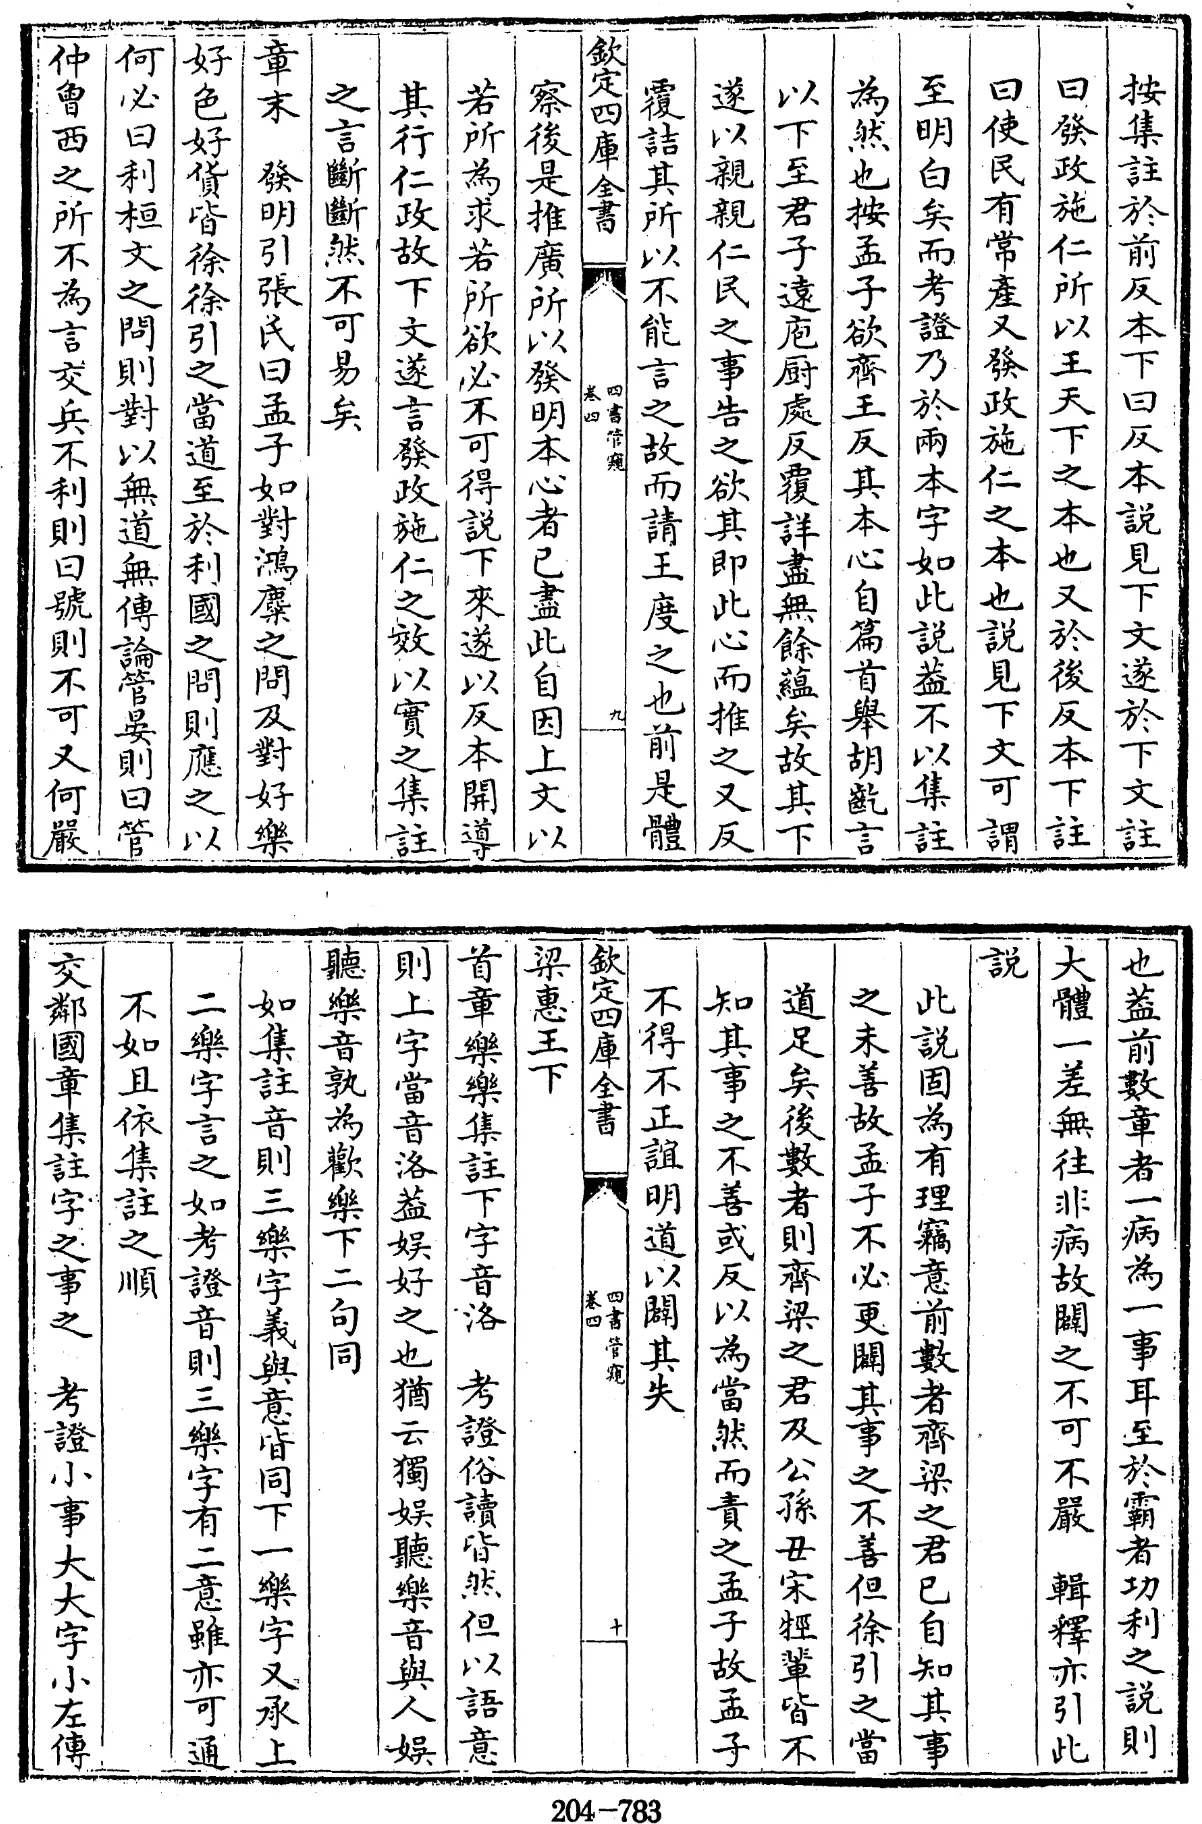 按集註於前反本下曰反本說見下文遂於下文註
曰發政施仁所以王天下之本也又於後反本下註
曰使民有常產又發政施仁之本也說見下文可謂
至明白矣而考證乃於兩本字如此說葢不以集註
為然也按孟子欲齊王反其本心自篇首舉胡齕言
以下至君子遠庖厨處反覆詳盡無餘蘊矣故其下
遂以親親仁民之事告之欲其即此心而推之又反
覆詰其所以不能言之故而請王度之也前是體
欽定四庫全書
四書管窺
卷四
九
察後是推廣所以發明本心者已盡此自因上文以
若所為求若所欲必不可得說下來遂以反本開導
其行仁政故下文遂言發政施仁之效以實之集註
之言斷斷然不可易矣
章末　發明引張氏曰孟子如對鴻麋之問及對好樂
好色好貨皆徐徐引之當道至於利國之問則應之以
何必曰利桓文之問則對以無道無傳論管晏則曰管
仲曾西之所不為言交兵不利則曰號則不可又何嚴
也葢前數章者一病為一事耳至於霸者功利之說則
大體一差無往非病故闢之不可不嚴　輯釋亦引此
說
此說固為有理竊意前數者齊梁之君已自知其事
之未善故孟子不必更闢其事之不善但徐引之當
道足矣後數者則齊梁之君及公孫丑宋牼輩皆不
知其事之不善或反以為當然而責之孟子故孟子
不得不正誼明道以闢其失
欽定四庫全書
四書管窺
卷四
十
梁惠王下
首章樂樂集註下字音洛　考證俗讀皆然但以語意
則上字當音洛葢娛好之也猶云獨娛聽樂音與人娛
聽樂音孰為歡樂下二句同
如集註音則三樂字義與意皆同下一樂字又承上
二樂字言之如考證音則三樂字有二意雖亦可通
不如且依集註之順
交鄰國章集註字之事之　考證小事大大字小左傳
204-783